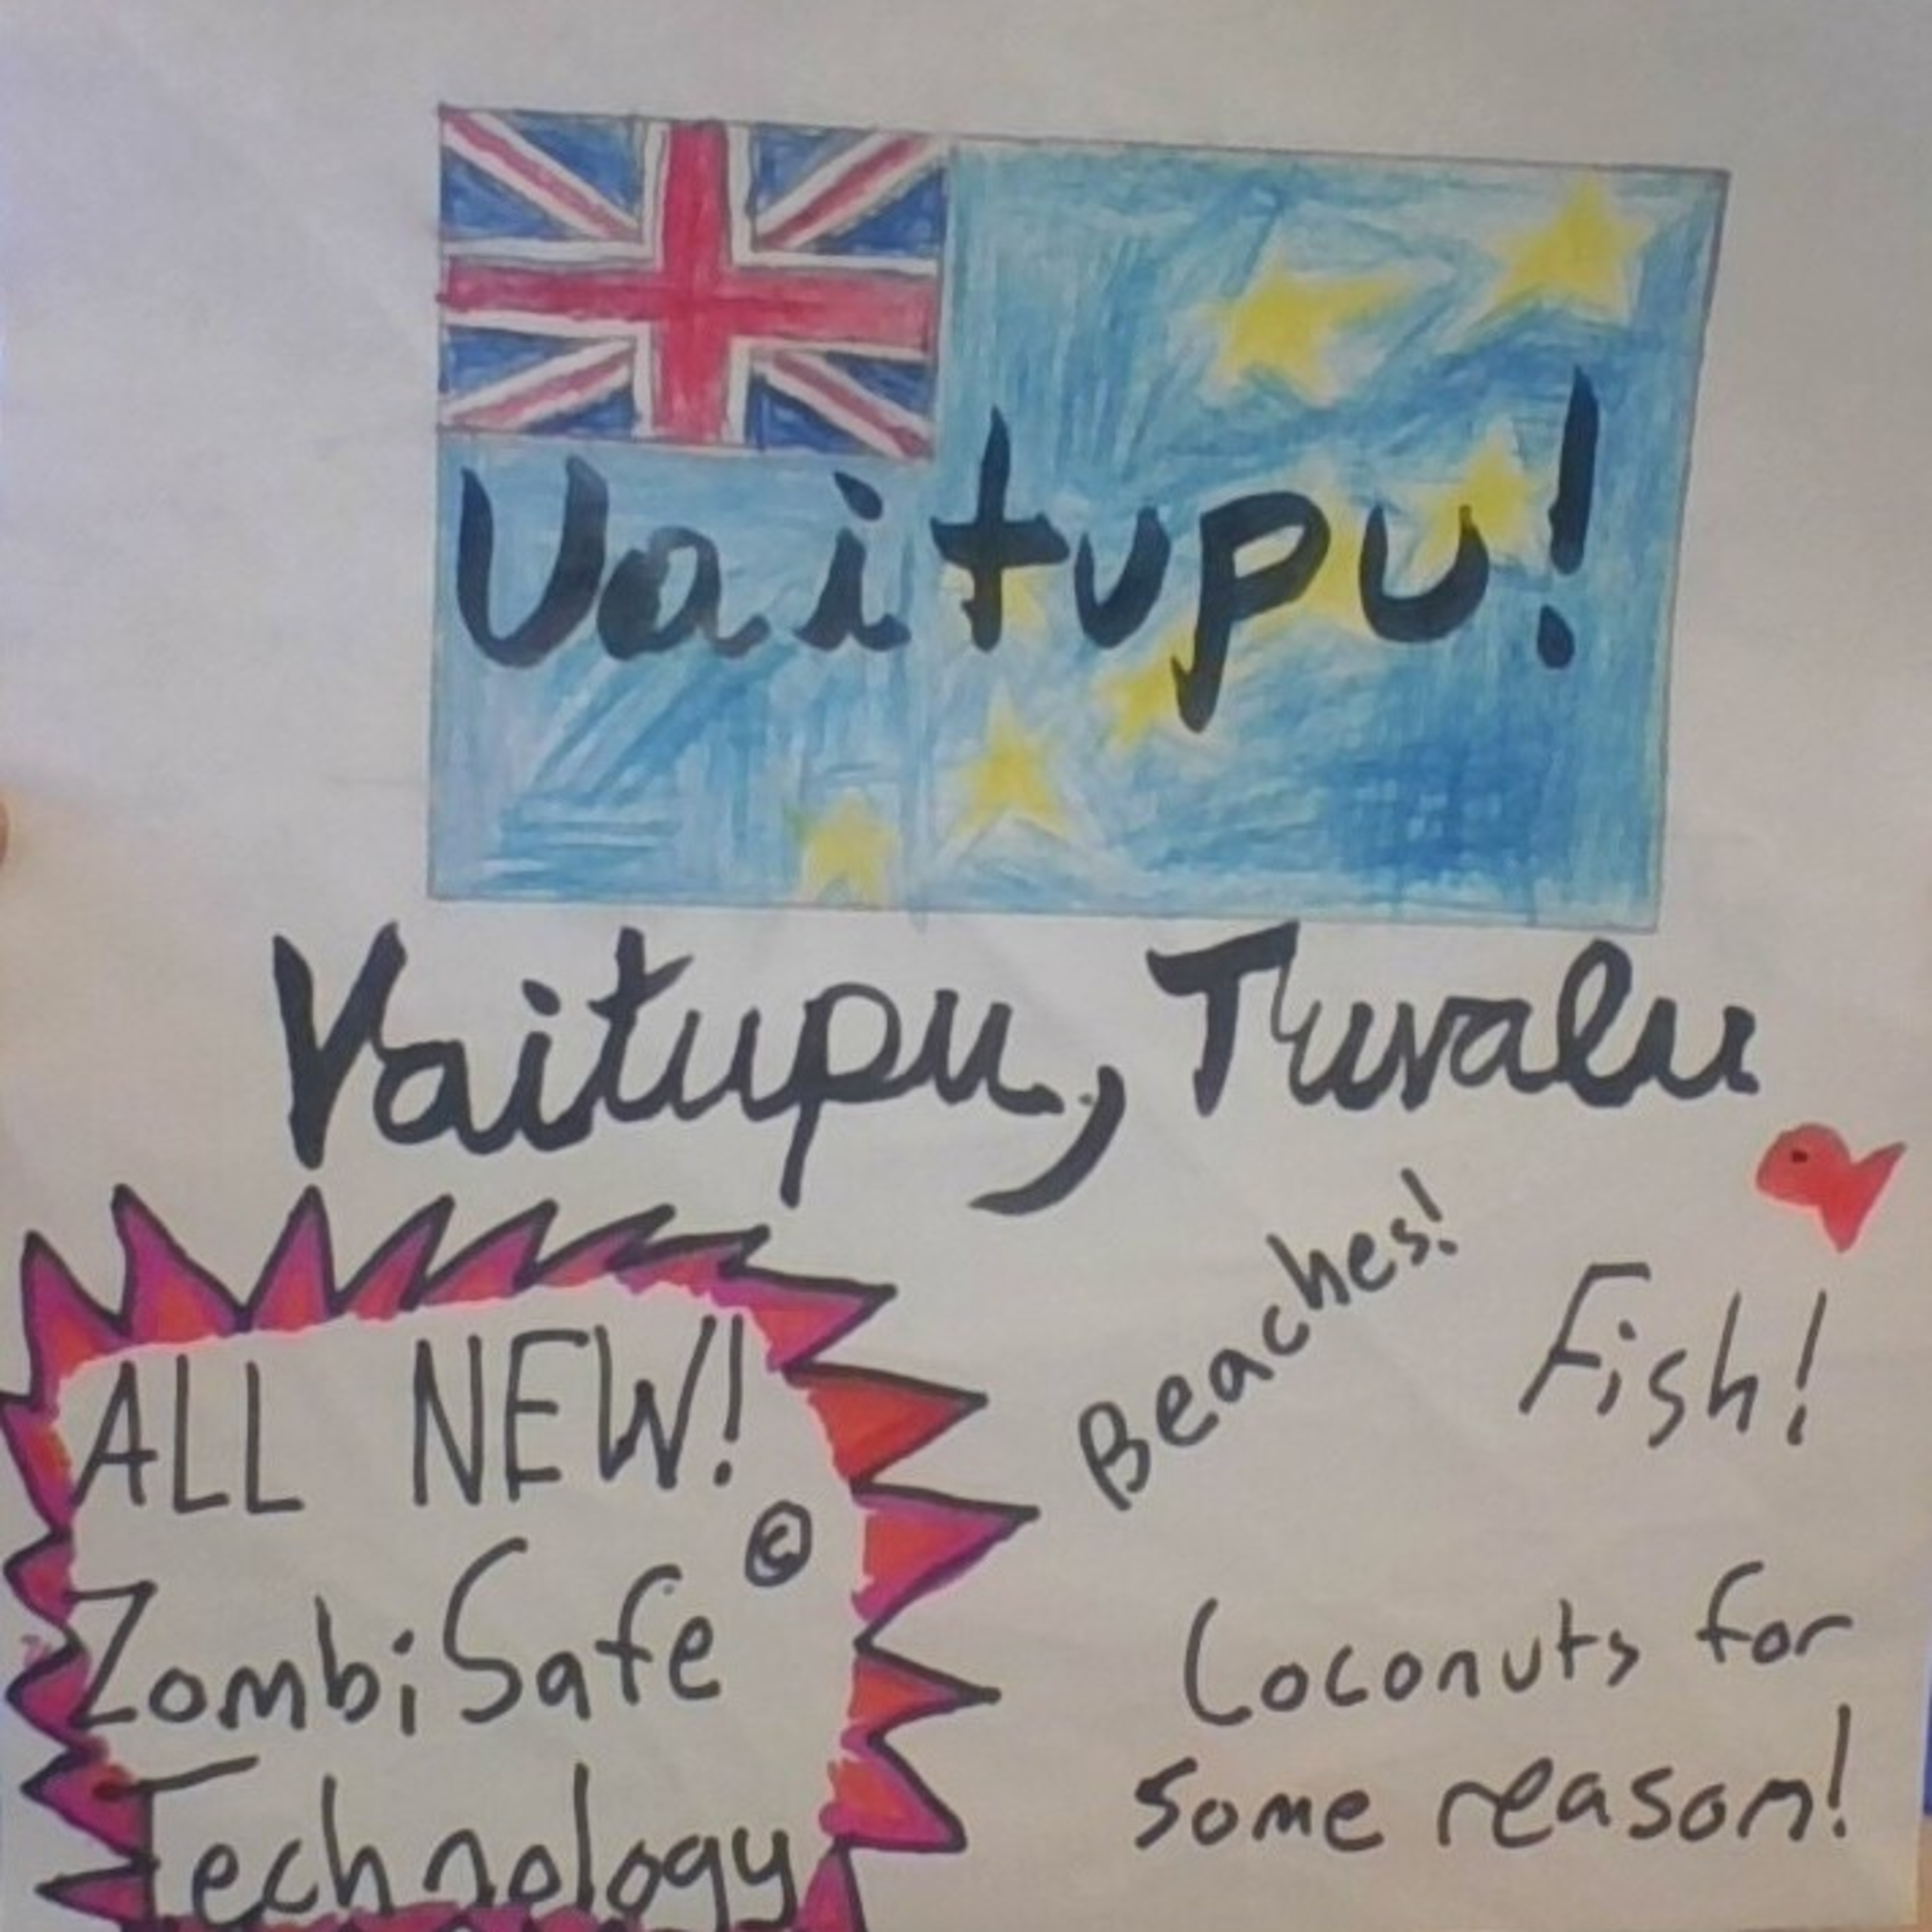 Vaitupu!
Vaitupu, Tuvalu
ALL NEW!
ZombiSafe ©
Technology
Beaches!
Fish!
Coconuts for
some reason!